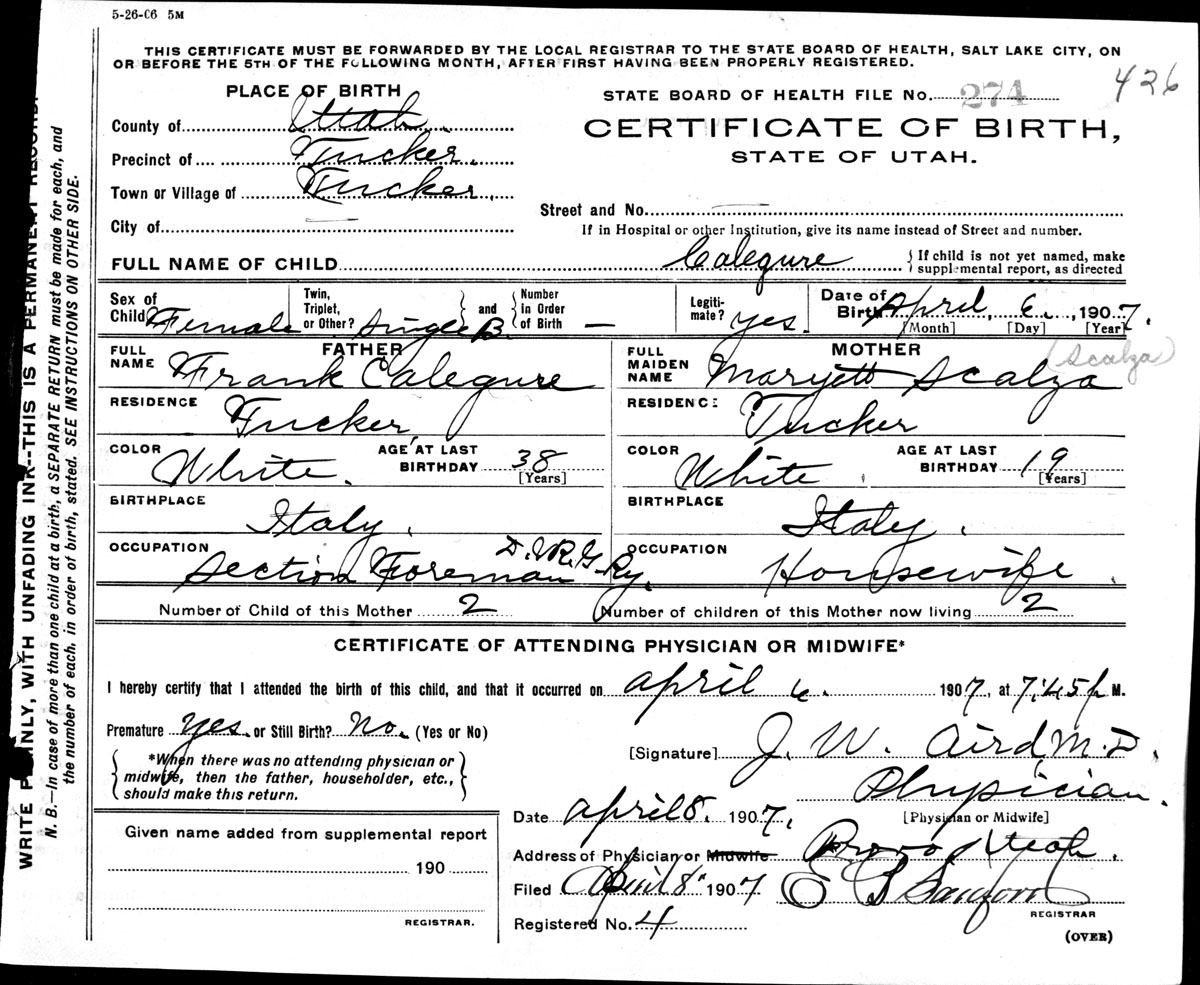 5-26-06 5M
THIS CERTIFICATE MUST BE FORWARDED BY THE LOCAL REGISTRAR TO THE STATE BOARD OF HEALTH, SALT LAKE CITY, ON
OR BEFORE THE 5TH OF THE FOLLOWING MONTH, AFTER FIRST HAVING BEEN PROPERLY REGISTERED.
426
PLACE OF BIRTH
STATE BOARD OF HEALTH FILE No. 274
County of Utah.
CERTIFICATE OF BIRTH,
STATE OF UTAH.
Precinct of Tucker.
Town or Village of Tucker.
Street and No. —
City of —
If in Hospital or other Institution, give its name instead of Street and number.
FULL NAME OF CHILD Calegure { If child is not yet named, make
supplemental report, as directed
Sex of Child Female Twin, Triplet, or Other? Single B. and Number in Order of Birth — Legiti-mate? yes. Date of Birth April, 6., 1907.
[Month] [Day] [Year]
FATHER MOTHER (Scalza)
FULL NAME Frank Calegure FULL MAIDEN NAME Maryett Scalza
RESIDENCE Tucker, RESIDENCE Tucker
COLOR White. AGE AT LAST BIRTHDAY 38 [Years] COLOR White AGE AT LAST BIRTHDAY 19 [Years]
BIRTHPLACE Italy. BIRTHPLACE Italy.
OCCUPATION Section Foreman D. & R. G. Ry. OCCUPATION Housewife.
Number of Child of this Mother 2 Number of children of this Mother now living 2
CERTIFICATE OF ATTENDING PHYSICIAN OR MIDWIFE*
I hereby certify that I attended the birth of this child, and that it occurred on April 6. 1907, at 7:45 p M.
Premature yes. or Still Birth? No. (Yes or No)
[Signature] J. W. Aird, M.D.
*When there was no attending physician or
midwife, then the father, householder, etc.,
should make this return.
Physician.
[Physician or Midwife]
Date April 8. 1907.
Given name added from supplemental report
Address of Physician or Midwife Provo Utah.
190
Filed April 8" 1907 E B Sanford
REGISTRAR
REGISTRAR.
Registered No. 4
(OVER)
WRITE PLAINLY, WITH UNFADING INK--THIS IS A PERMANENT RECORD.
N. B.—In case of more than one child at a birth, a SEPARATE RETURN must be made for each, and
the number of each, in order of birth, stated. SEE INSTRUCTIONS ON OTHER SIDE.